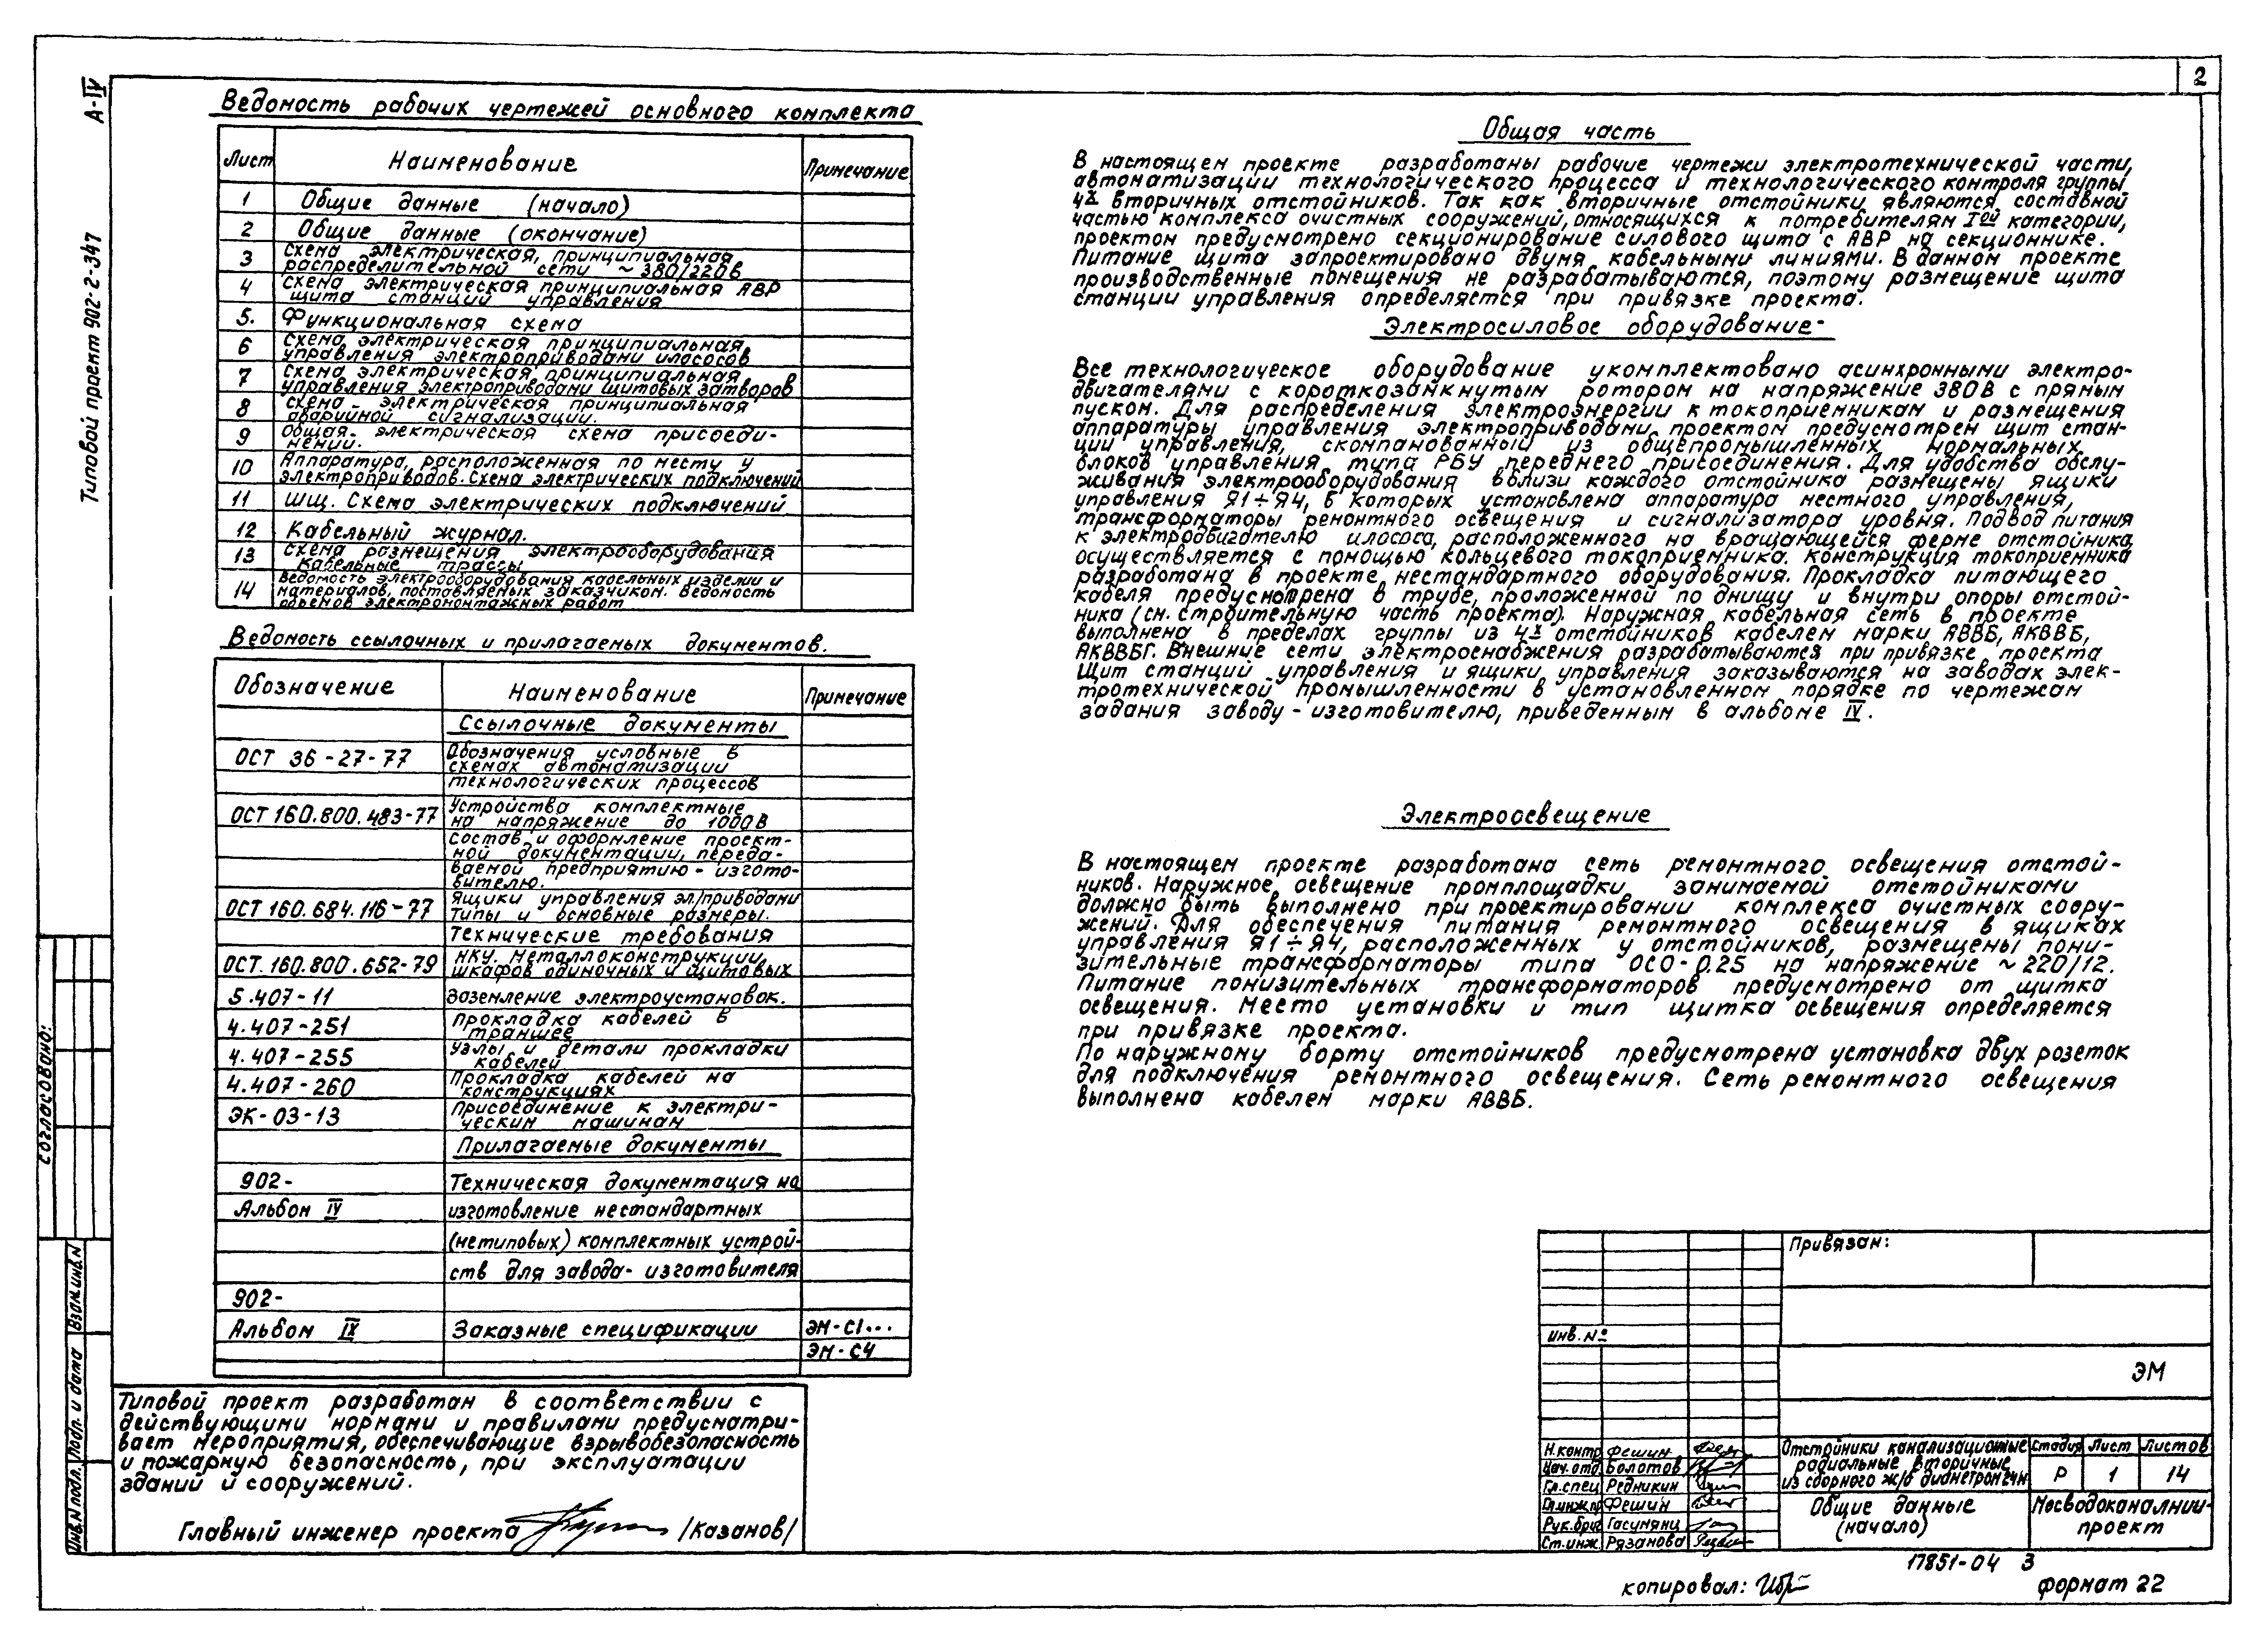 2
А-IV
Типовой проект 902-2-347
Ведомость рабочих чертежей основного комплекта
Лист Наименование Примечание
1 Общие данные (начало)
2 Общие данные (окончание)
3 Схема электрическая, принципиальная
распределительной сети ~380/220в
4 Схема электрическая принципиальная АВР
щита станций управления
5. Функциональная схема
6 Схема электрическая принципиальная
управления электроприводами илососов
7 Схема электрическая, принципиальная
управления электроприводами щитовых затворов
8 Схема электрическая принципиальная
аварийной сигнализации.
9 Общая электрическая схема присоеди-
нений.
10 Аппаратура, расположенная по месту у
электроприводов. Схема электрических подключений
11 ШЩ. Схема электрических подключений
12 Кабельный журнал.
13 Схема размещения электрооборудования
Кабельные трассы
14 Ведомость электрооборудования кабельных изделий и
материалов, поставляемых заказчиком. Ведомость
объемов электромонтажных работ
Ведомость ссылочных и прилагаемых документов.
Обозначение Наименование Примечание
Ссылочные документы
ОСТ 36-27-77 Обозначения условные в
схемах автоматизации
технологических процессов
ОСТ 160.800.483-77 Устройства комплектные
на напряжение до 1000В
Состав и оформление проект-
ной документации, переда-
ваемой предприятию-изгото-
вителю.
ОСТ 160.684.116-77 Ящики управления эл/приводами
Типы и основные размеры.
Технические требования
ОСТ.160.800.652-79 НКУ. Металлоконструкции,
шкафов одиночных и щитовых
5.407-11 Заземление электроустановок.
4.407-251 Прокладка кабелей в
траншее
4.407-255 Узлы и детали прокладки
кабелей
4.407-260 Прокладка кабелей на
конструкциях
ЭК-03-13 Присоединение к электри-
ческим машинам
Прилагаемые документы
902- Техническая документация на
Альбом IV изготовление нестандартных
(нетиповых) комплектных устрой-
ств для завода-изготовителя
902-
Альбом IX Заказные спецификации ЭМ-С1...
ЭМ-С4
Типовой проект разработан в соответствии с
действующими нормами и правилами предусматри-
вает мероприятия, обеспечивающие взрывобезопасность
и пожарную безопасность, при эксплуатации
зданий и сооружений.
Главный инженер проекта /Казанов/
Общая часть
В настоящем проекте разработаны рабочие чертежи электротехнической части,
автоматизации технологического процесса и технологического контроля группы
4х вторичных отстойников. Так как вторичные отстойники являются составной
частью комплекса очистных сооружений, относящихся к потребителям Iой категории,
проектом предусмотрено секционирование силового щита с АВР на секционнике.
Питание щита запроектировано двумя кабельными линиями. В данном проекте
производственные помещения не разрабатываются, поэтому размещение щита
станции управления определяется при привязке проекта.
Электросиловое оборудование
Все технологическое оборудование укомплектовано асинхронными электро-
двигателями с короткозамкнутым ротором на напряжение 380В с прямым
пуском. Для распределения электроэнергии к токоприемникам и размещения
аппаратуры управления электроприводами проектом предусмотрен щит стан-
ции управления, скомпанованный из общепромышленных нормальных
блоков управления типа РБУ переднего присоединения. Для удобства обслу-
живания электрооборудования вблизи каждого отстойника размещены ящики
управления Я1÷Я4, в которых установлена аппаратура местного управления,
трансформаторы ремонтного освещения и сигнализатора уровня. Подвод питания
к электродвигателю илососа, расположенного на вращающейся ферме отстойника
осуществляется с помощью кольцевого токоприемника. Конструкция токоприемника
разработана в проекте нестандартного оборудования. Прокладка питающего
кабеля предусмотрена в трубе, проложенной по днищу и внутри опоры отстой-
ника (см. строительную часть проекта). Наружная кабельная сеть в проекте
выполнена в пределах группы из 4х отстойников кабелем марки АВВБ, АКВВБ,
АКВВБГ. Внешние сети электроснабжения разрабатываются при привязке проекта
Щит станций управления и ящики управления заказываются на заводах элек-
тротехнической промышленности в установленном порядке по чертежам
задания заводу-изготовителю, приведенным в альбоме IV.
Электроосвещение
В настоящем проекте разработана сеть ремонтного освещения отстой-
ников. Наружное освещение промплощадки занимаемой отстойниками
должно быть выполнено при проектировании комплекса очистных соору-
жений. Для обеспечения питания ремонтного освещения в ящиках
управления Я1÷Я4, расположенных у отстойников, размещены пони-
зительные трансформаторы типа ОСО-0.25 на напряжение ~220/12.
Питание понизительных трансформаторов предусмотрено от щитка
освещения. Место установки и тип щитка освещения определяется
при привязке проекта.
По наружному борту отстойников предусмотрена установка двух розеток
для подключения ремонтного освещения. Сеть ремонтного освещения
выполнена кабелем марки АВВБ.
Согласовано:
Взам.инв.N
Подп. и дата
Инв.N подл.
Привязан:
Инв.№
ЭМ
Н.контр Фешин
Нач.отд Болотов
Гл.спец Редникин
Гл.инж.пр Фешин
Рук.бриг Гасумянц
Ст.инж. Рязанова
Отстойники канализационные
радиальные вторичные
из сборного ж/б диаметром 24м
Стадия Лист Листов
Р 1 14
Общие данные
(начало)
Мосводоканалнии-
проект
17851-04 3
копировал:
формат 22